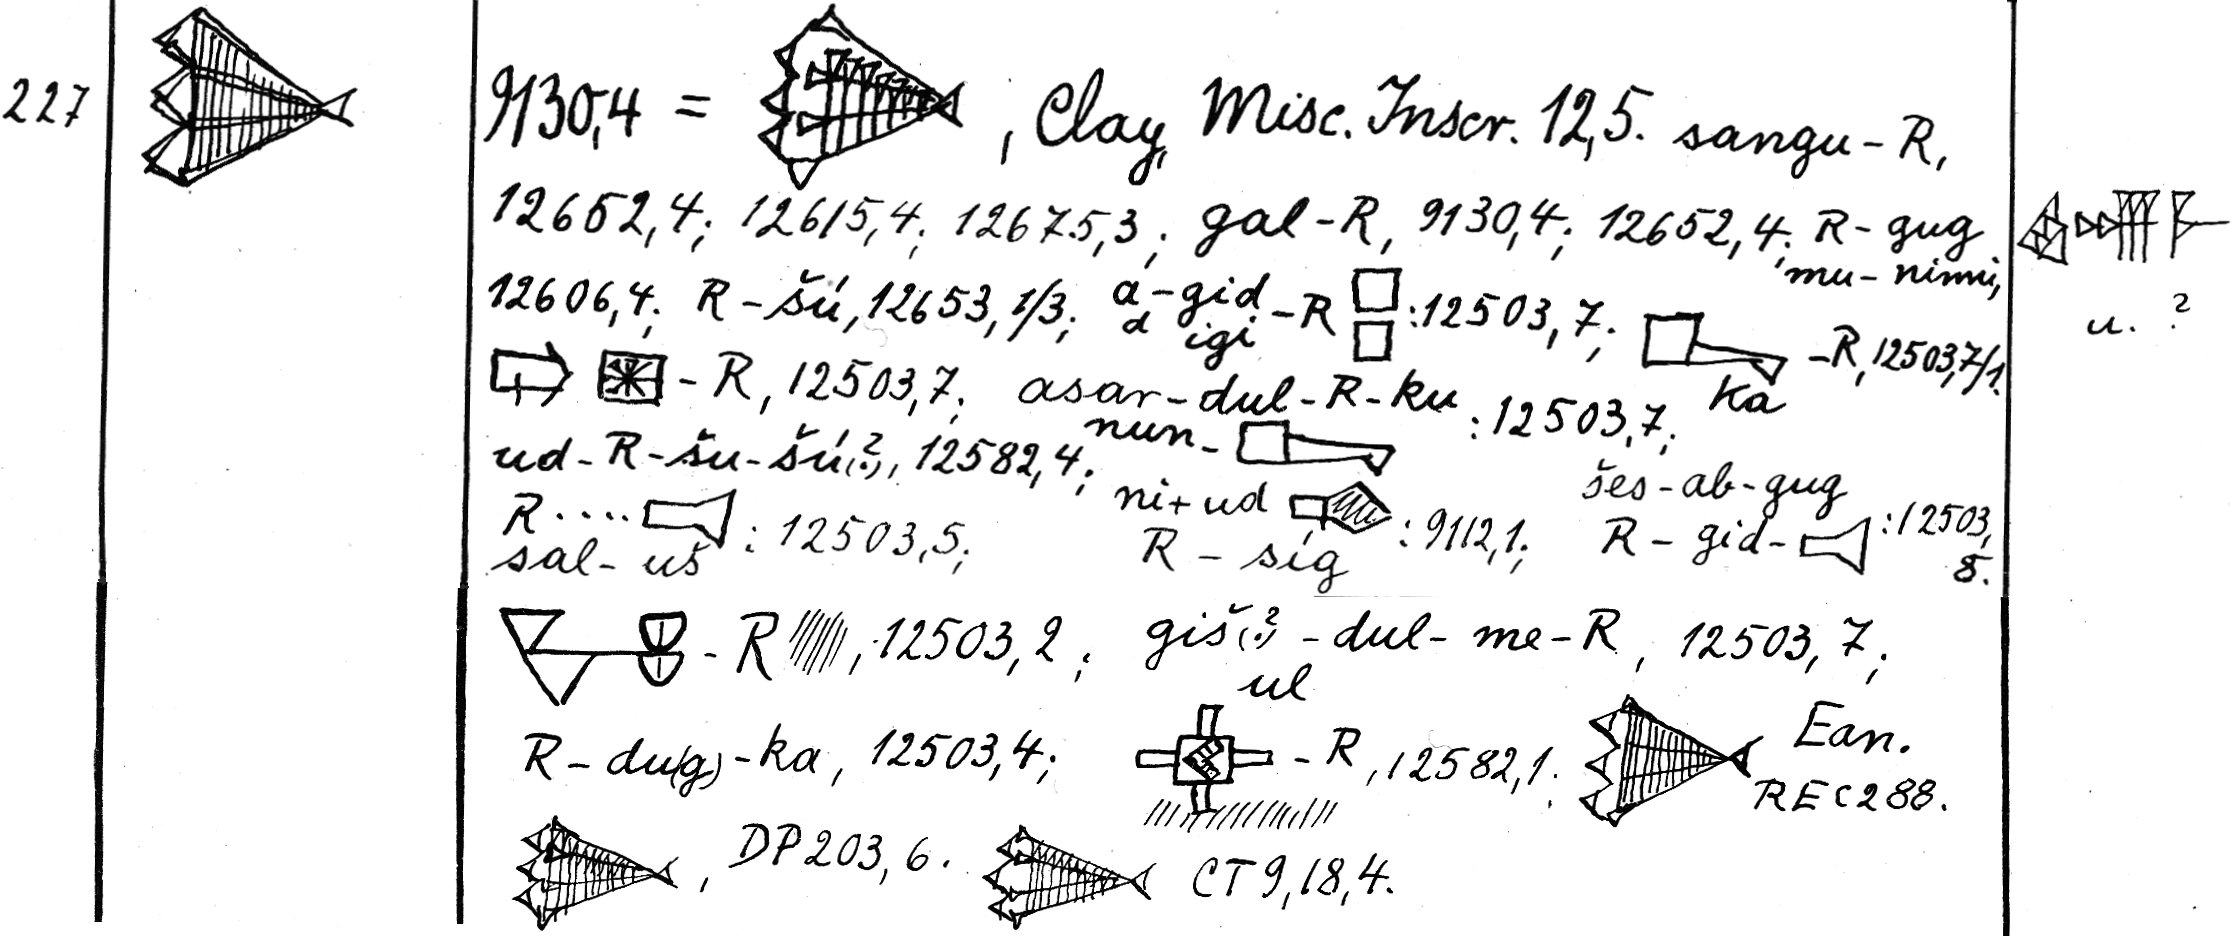 227
9130,4 = , Clay, Misc. Inscr. 12,5. sangu - R,
12652,4; 12615,4; 12675,3; gal - R, 9130,4; 12652,4; R - gug
mu - nimi,
12606,4; R - šú, 12653, 1/3; a - gid - R : 12503, 7; - R, 12503,7/1.
d igi
ka
- R, 12503,7; asar - dul - R - ku : 12503,7;
nun -
ud - R - šu - šú(?), 12582,4;
R .... : 12503,5; ni + ud : 9112,1; šes - ab - gug : 12503,
sal - uš R - síg R - gid - 8.
- R , 12503, 2; giš(?) - dul - me - R, 12503, 7;
ul
R - du(g) - ka, 12503,4; - R, 12582,1. Ean.
REC 288.
, DP 203, 6. CT 9,18,4.
u. ?